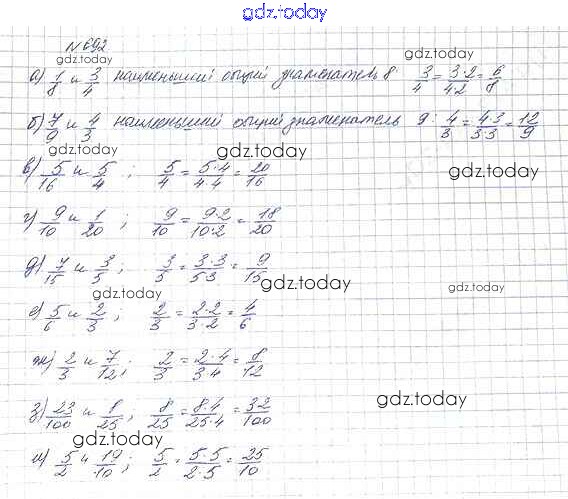 gdz.today
№692
gdz.today
а) 1/8 и 3/4 наименьший общий знаменатель 8 3/4 = 3·2/4·2 = 6/8
gdz.today
б) 7/9 и 4/3 наименьший общий знаменатель 9: 4/3 = 4·3/3·3 = 12/9
gdz.today gdz.today
в) 5/16 и 5/4 ; 5/4 = 5·4/4·4 = 20/16
gdz.today
г) 9/10 и 1/20 ; 9/10 = 9·2/10·2 = 18/20
д) 7/15 и 3/5 ; 3/5 = 3·3/5·3 = 9/15
gdz.today gdz.today gdz.today
е) 5/6 и 2/3 ; 2/3 = 2·2/3·2 = 4/6
ж) 2/3 и 7/12 ; 2/3 = 2·4/3·4 = 8/12
gdz.today
з) 23/100 и 8/25 ; 8/25 = 8·4/25·4 = 32/100
gdz.today
и) 5/2 и 19/10 ; 5/2 = 5·5/2·5 = 25/10
gdz.today